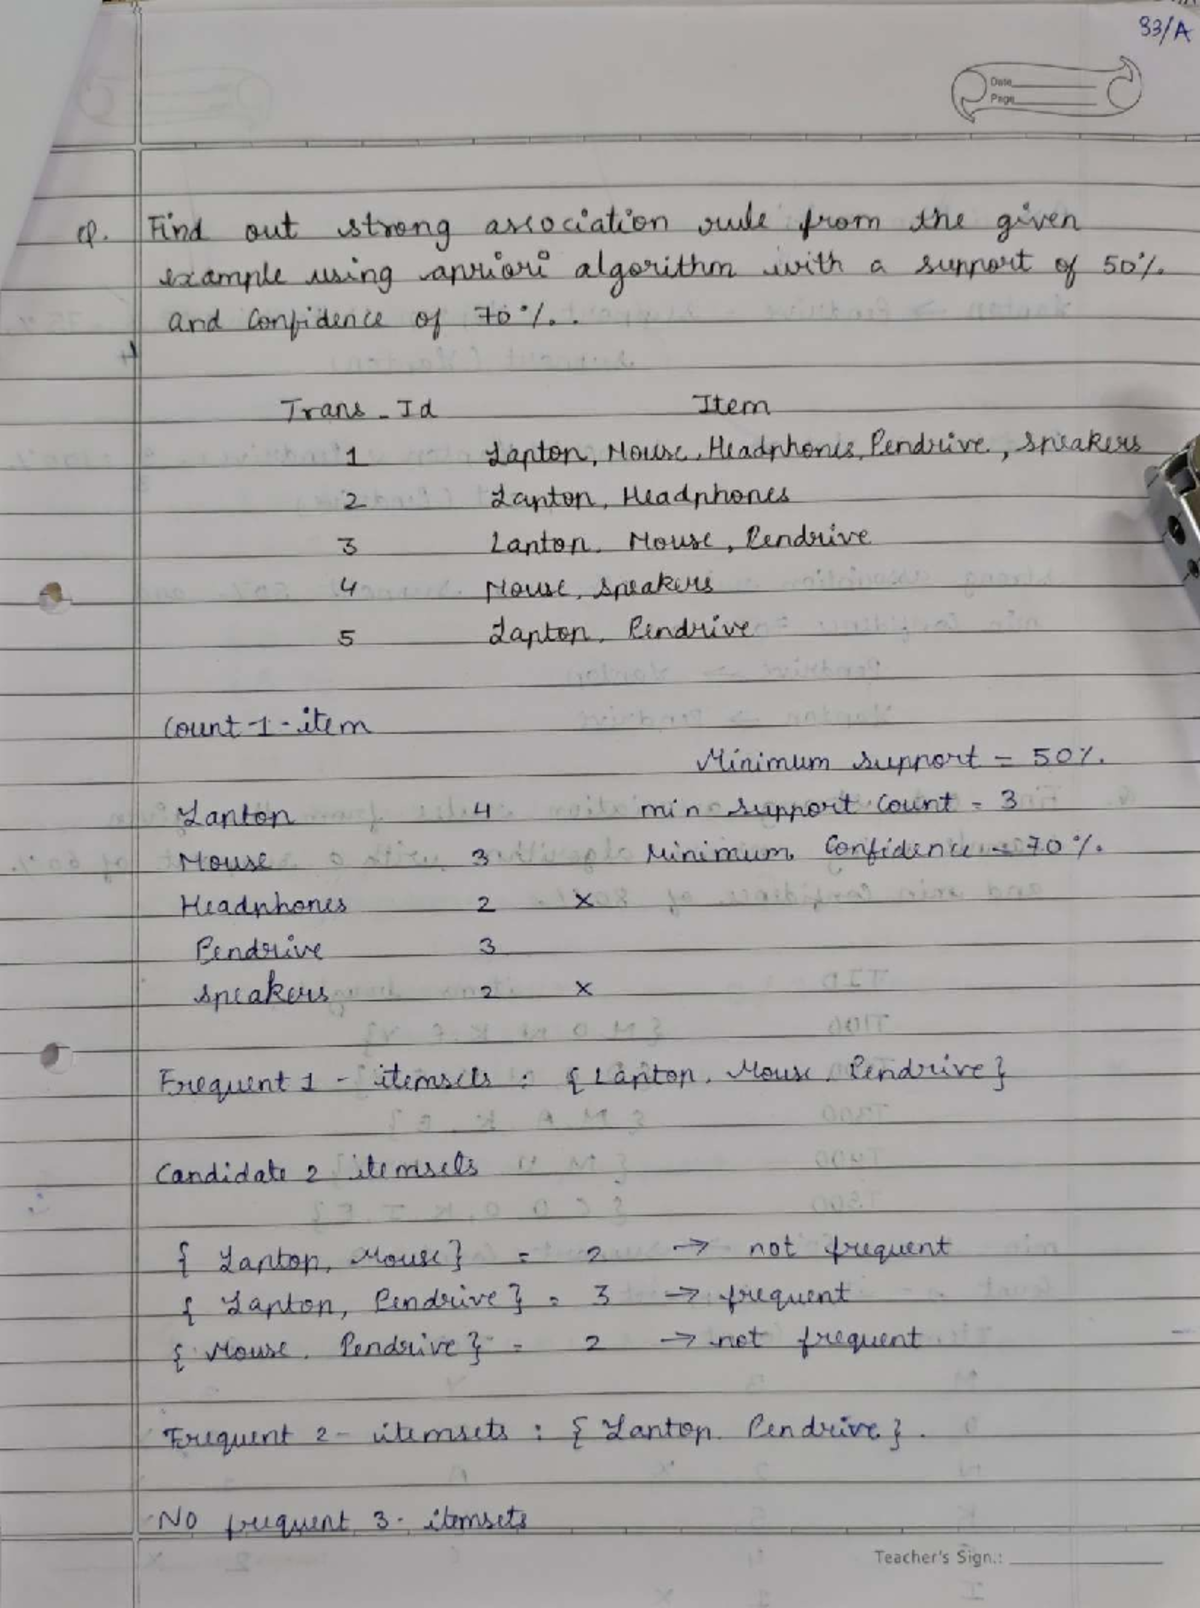 33/A
Date
Page
Q. Find out strong association rule from the given
example using apriori algorithm with a support of 50%.
and Confidence of 70%.
Trans_Id Item
1 Laptop, Mouse, Headphones, Pendrive, Speakers
2 Laptop, Headphones
3 Laptop, Mouse, Pendrive
4 Mouse, Speakers
5 Laptop, Pendrive
Count-1-item
Minimum support = 50%.
Laptop 4 min support count = 3
Mouse 3 Minimum Confidence = 70%.
Headphones 2 x
Pendrive 3
Speakers 2 x
Frequent 1 - itemsets : {Laptop, Mouse, Pendrive}
Candidate 2 itemsets
{ Laptop, Mouse} = 2 → not frequent
{ Laptop, Pendrive} = 3 → frequent
{ Mouse, Pendrive} = 2 → not frequent
Frequent 2 - itemsets : { Laptop Pendrive}.
No frequent 3- itemsets
Teacher's Sign.: